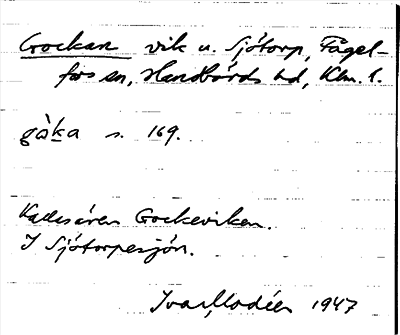 Gockan vik u. Sjötorp, Fågel-
fors sn, Handbörds hd, Klm. l.
gàka s. 169.
Kallas även Gockeviken.
I Sjötorpesjön.
Ivar Modéer 1947